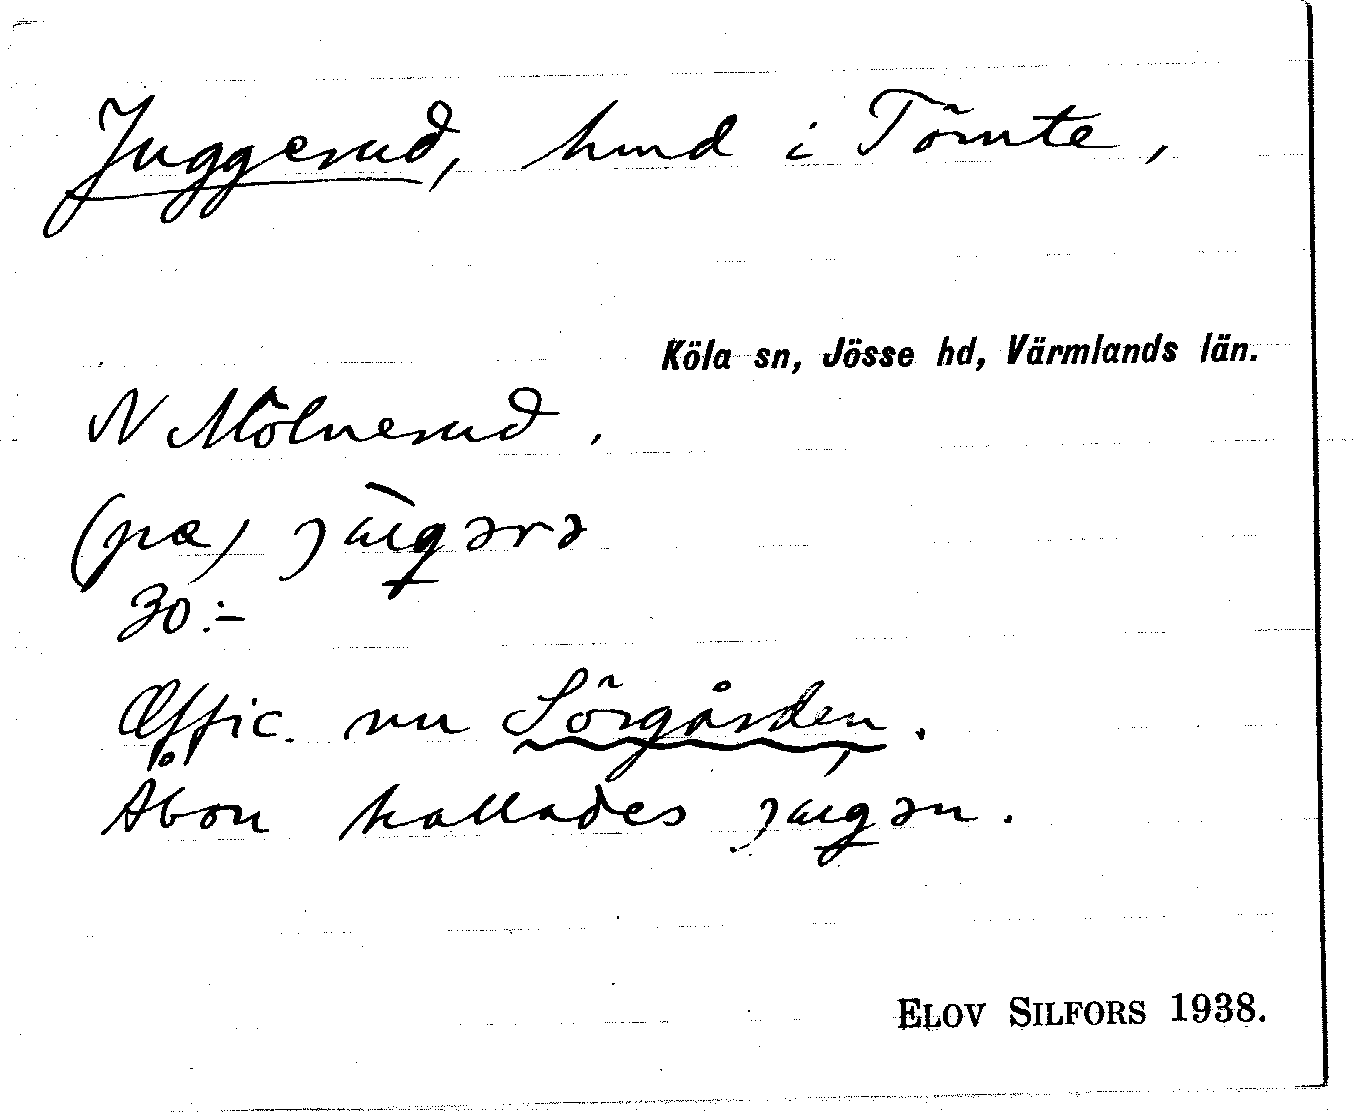 Juggerud, hmd i Tömte,
Köla sn, Jösse hd, Värmlands län.
N Mölnerud.
(pæ)
30:-
Offic. nu Sörgården.
Åbon kallades
ELOV SILFORS 1938.